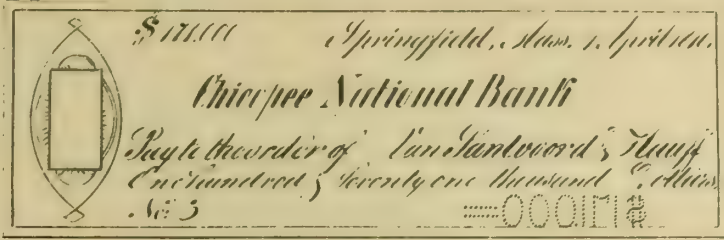 $171,000 Springfield, Mass. 1, April 1881.
Chicopee National Bank
Pay to the order of Van Santvoord & Hauff
One hundred & seventy one thousand Dollars
No. 3